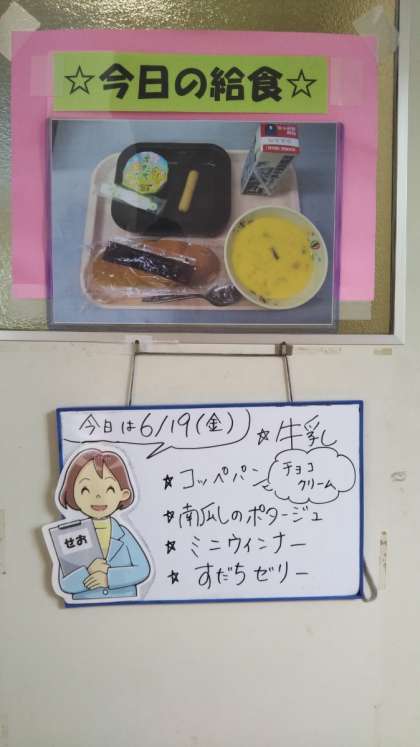 ☆今日の給食☆
今日は6/19(金)
☆牛乳
☆コッペパン
チョコ
クリーム
☆南瓜しのポタージュ
☆ミニウィンナー
☆すだちゼリー
せお